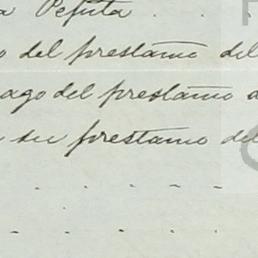 a Pepita . . .
o del prestamo del
ago del prestamo d
a su prestamo del